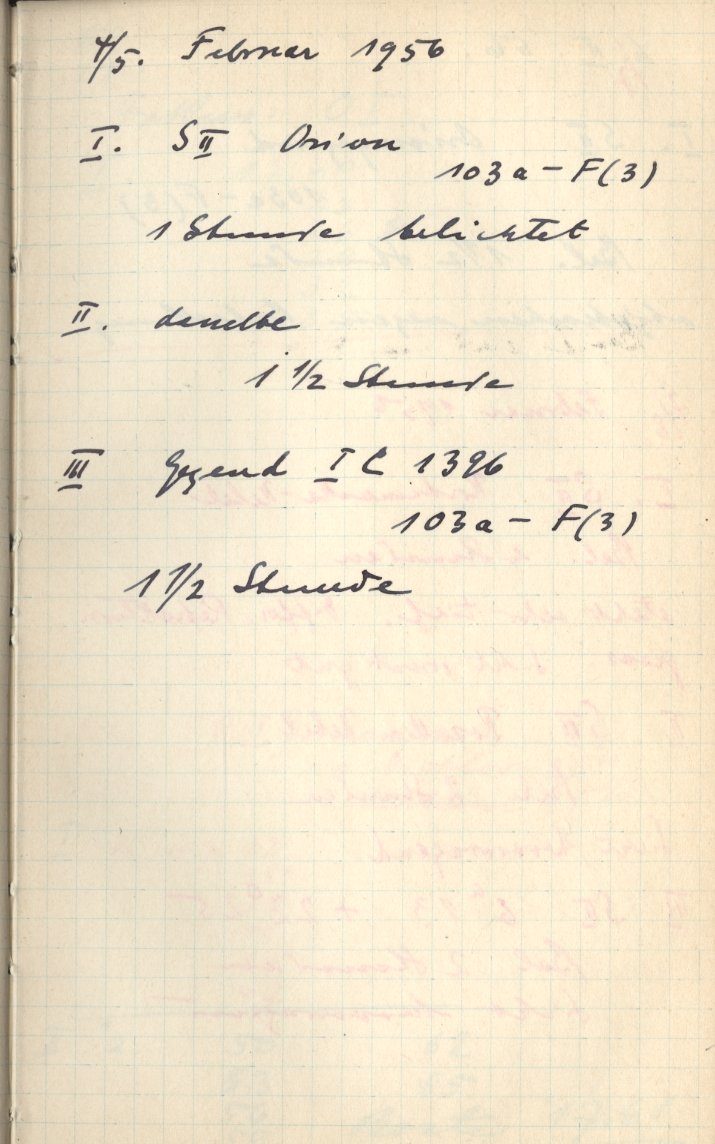 4/5. Februar 1956
I. SII Orion
103a-F(3)
1 Stunde belichtet
II. dasselbe
1 1/2 Stunde
III Gegend IC 1396
103a-F(3)
1 1/2 Stunde